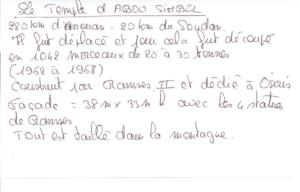 Le Temple d'ABOU SIMBEL
280 km d'Assouan. 20 km du Soudan
Il fut déplacé et pour cela fut découpé
en 1042 morceaux de 20 à 30 tonnes
(1962 à 1968)
Construit par Ramses II et dédié à Osiris
Façade = 38 m x 33 m h avec les 4 statues
de Ramses
Tout est taillé dans la montagne.